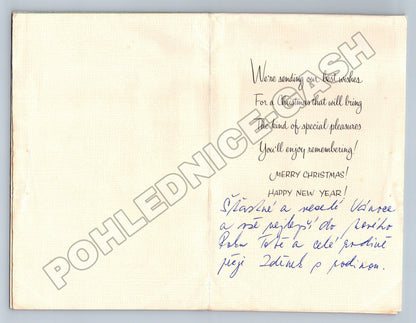 We're sending our best wishes
For a Christmas that will bring
The kind of special pleasures
You'll enjoy remembering!
MERRY CHRISTMAS!
HAPPY NEW YEAR!
Šťastné a veselé Vánoce
a vše nejlepší do Nového
Roku Tetě a celé rodině
přeje Zdeněk s rodinou.
POHLEDNICE-GASH